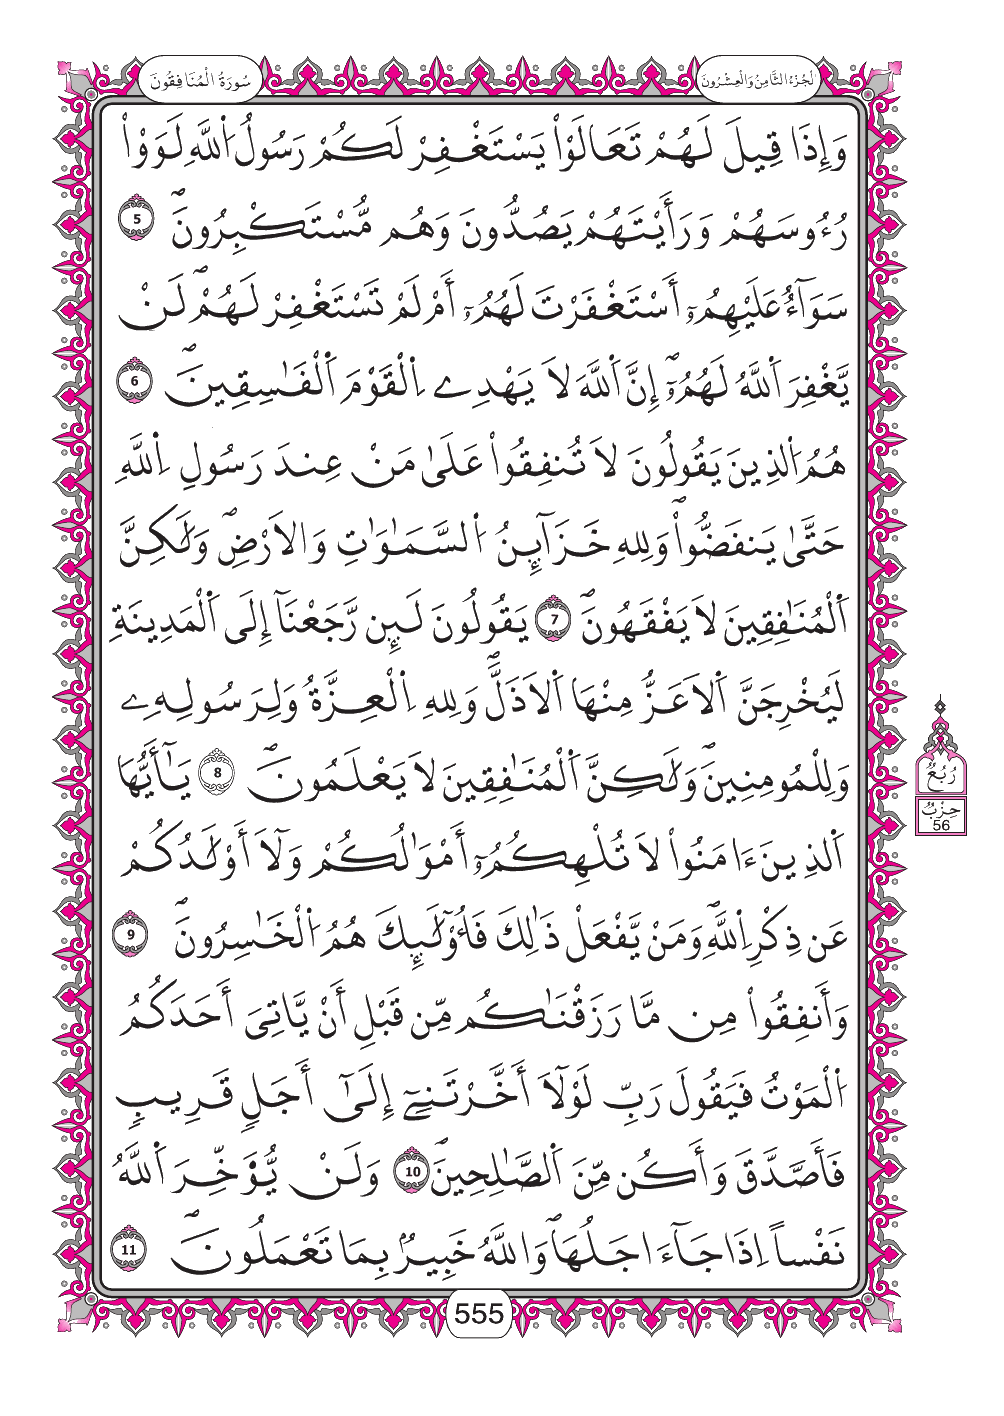 الجزء الثامن والعشرون
سورة المنافقون
وَإِذَا قِيلَ لَهُمْ تَعَالَوْاْ يَسْتَغْفِرْ لَكُمْ رَسُولُ اُللَّهِ لَوَوْاْ
رُءُوسَهُمْ وَرَأَيْتَهُمْ يَصُدُّونَ وَهُم مُّسْتَكْبِرُونَۖ 5
سَوَآءٌ عَلَيْهِمُۥٓ أَسْتَغْفَرْتَ لَهُمُۥٓ أَمْ لَمْ تَسْتَغْفِرْ لَهُمْۖ لَنْ
يَّغْفِرَ اَللَّهُ لَهُمُۥٓۖ إِنَّ اَللَّهَ لاَ يَهْدِے اِلْقَوْمَ اَلْفَٰسِقِينَۖ 6
هُمُ اُلذِينَ يَقُولُونَ لاَ تُنفِقُواْ عَلَىٰ مَنْ عِندَ رَسُولِ اِللَّهِ
حَتَّىٰ يَنفَضُّواْۖ وَلِلهِ خَزَآئِنُ اُلسَّمَٰوَٰتِ وَالاَرْضِۖ وَلَٰكِنَّ
اَلْمُنَٰفِقِينَ لاَ يَفْقَهُونَۖ 7 يَقُولُونَ لَئِن رَّجَعْنَآ إِلَى اَلْمَدِينَةِ
لَيُخْرِجَنَّ اَلاَعَزُّ مِنْهَا اَلاَذَلَّۖ وَلِلهِ اِلْعِزَّةُ وَلِرَسُولِهِۦ
وَلِلْمُومِنِينَۖ وَلَٰكِنَّ اَلْمُنَٰفِقِينَ لاَ يَعْلَمُونَۖ 8 يَٰٓأَيُّهَا
اَلذِينَ ءَامَنُواْ لاَ تُلْهِكُمُۥٓ أَمْوَٰلُكُمْ وَلَآ أَوْلَٰدُكُمْ
عَن ذِكْرِ اِللَّهِۖ وَمَنْ يَّفْعَلْ ذَٰلِكَ فَأُوْلَٰٓئِكَ هُمُ اُلْخَٰسِرُونَۖ 9
وَأَنفِقُواْ مِن مَّا رَزَقْنَٰكُم مِّن قَبْلِ أَنْ يَّاتِىَ أَحَدَكُمُ
اُلْمَوْتُ فَيَقُولَ رَبِّ لَوْلَآ أَخَّرْتَنِےٓ إِلَىٰٓ أَجَلٍ قَرِيبٍ
فَأَصَّدَّقَ وَأَكُن مِّنَ اَلصَّٰلِحِينَۖ 10 وَلَنْ يُّؤَخِّرَ اَللَّهُ
نَفْساً اِذَا جَآءَ اجَلُهَاۖ وَاللَّهُ خَبِيرٌۢ بِمَا تَعْمَلُونَۖ 11
رُبُعُ
حِزْبُ
56
555